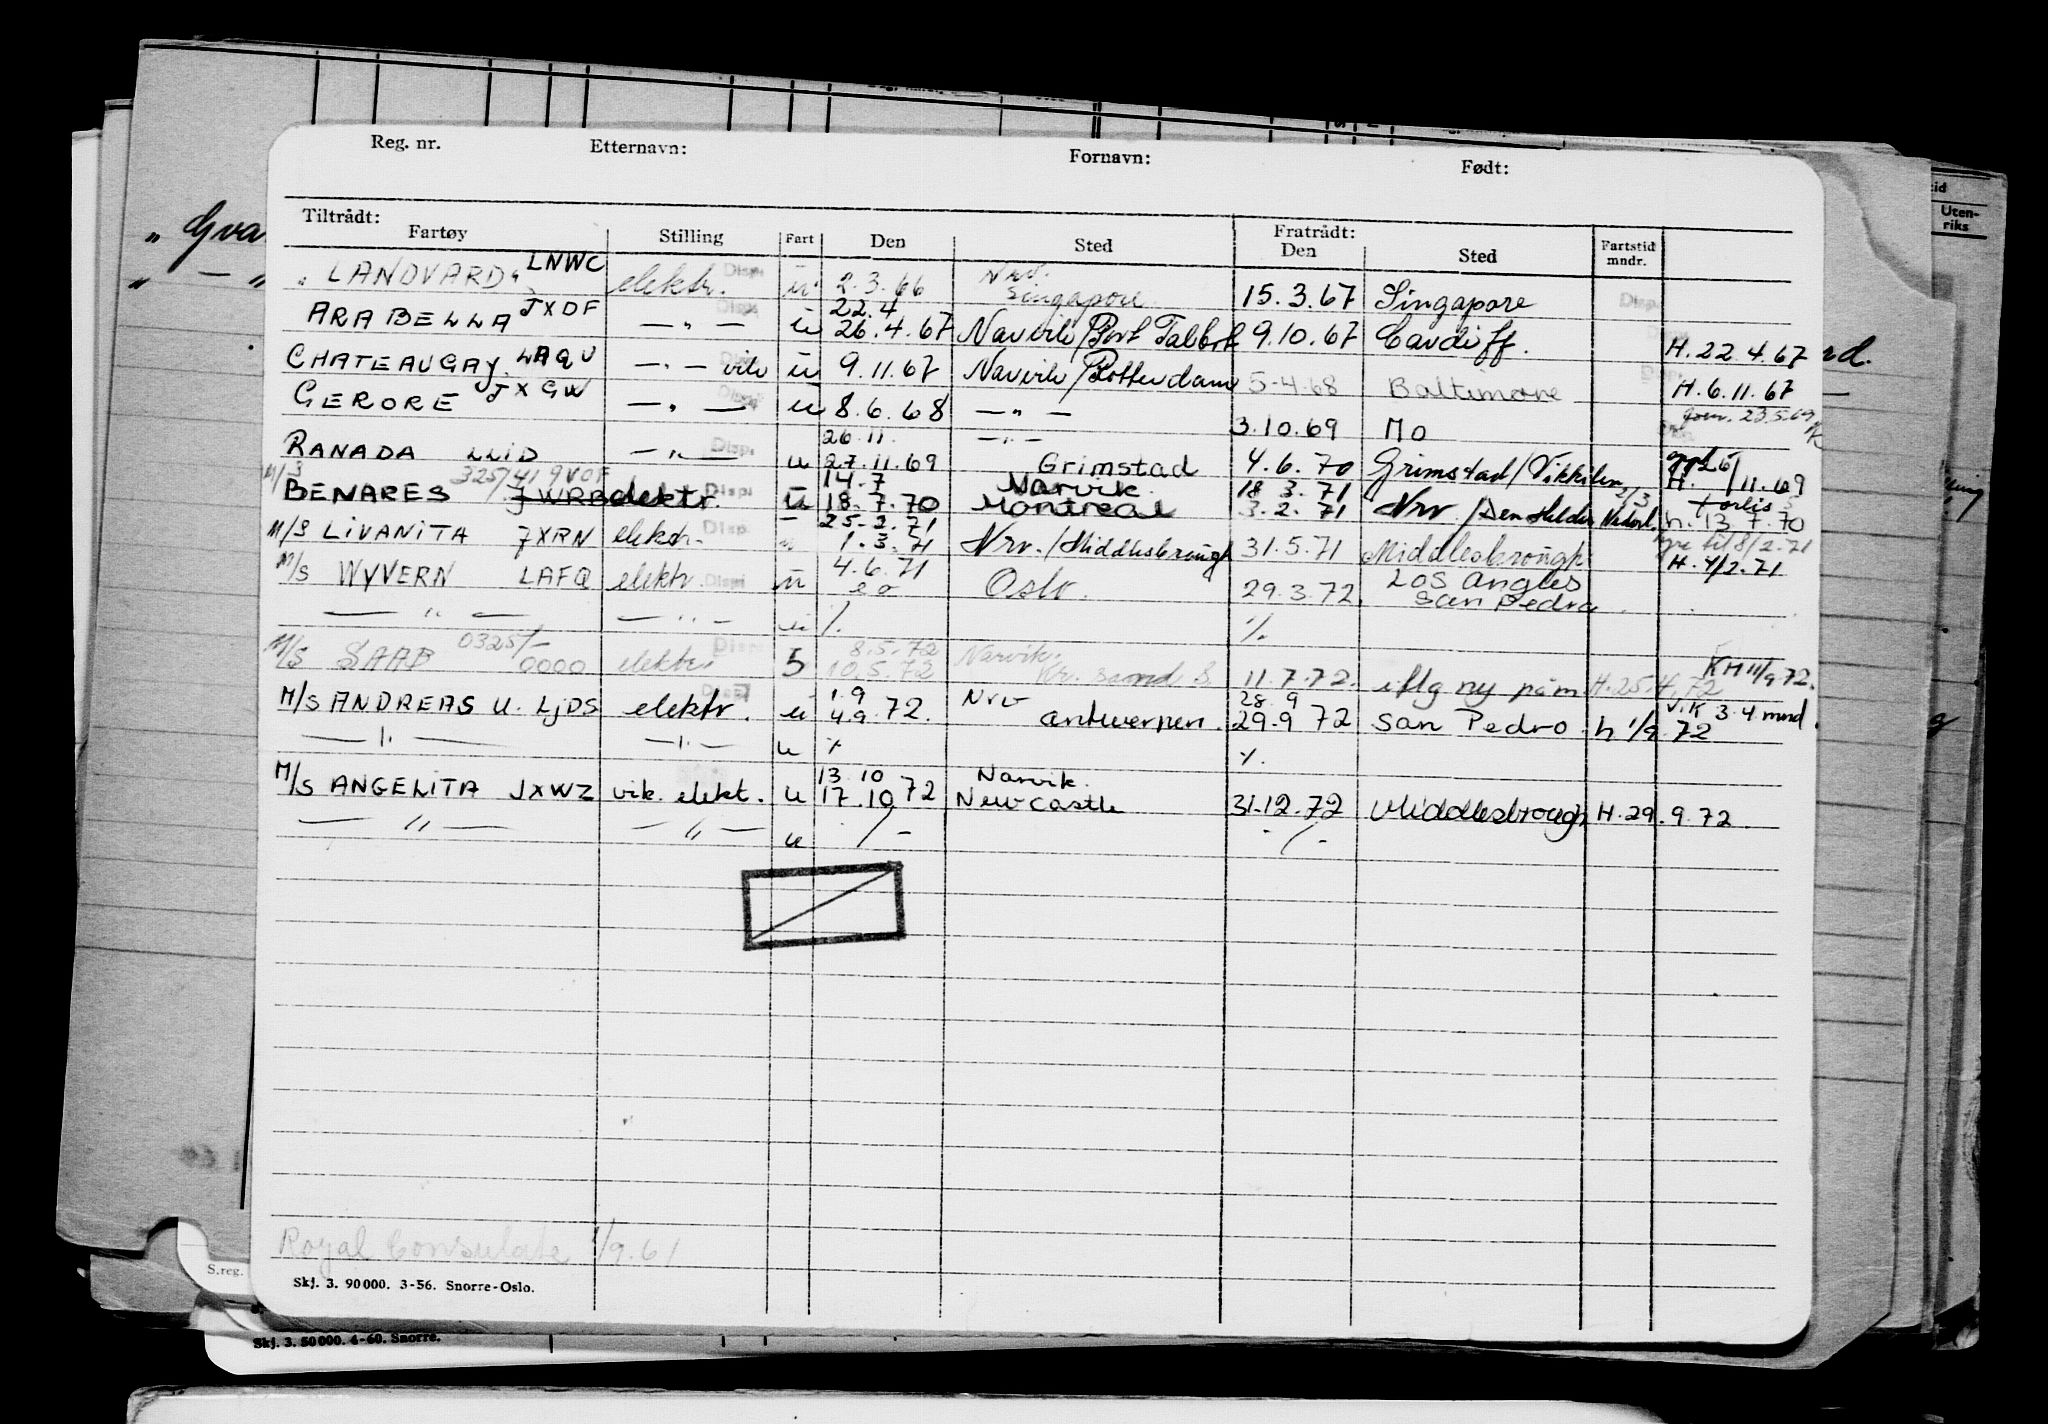 Reg. nr. Etternavn: Fornavn: Født:
Tiltrådt: Fratrådt:
Fartøy Stilling Fart Den Sted Den Sted Fartstid mndr.
tid
Uten-
riks
„ Gva
„ — „
LANDVARD LNWC elektr. Disp. u 2.3.66 Nrv. Singapore 15.3.67 Singapore Disp.
ARABELLA JXDF — „ — u 22.4 26.4.67 Narvik/Port Talbot 9.10.67 Cardiff. H.22.4.67
CHATEAUGAY. LAQU — „ — vik u 9.11.67 Narvik/Rotterdam 5-4.68 Baltimore H.6.11.67
GERORE JXGW — „ — u 8.6.68 — „ — 3.10.69 MO 23.5.69
RANADA LLID — „ — Disp. u 26.11. 27.11.69 — „ — Grimstad 4.6.70 Grimstad/Vikkilen H. /11.69
M/S BENARES 325/41 9VOF JWRB elektr. Disp. u 14.7 18.7.70 Narvik Montreal 18.3.71 3.2.71 Nrv/Den Helder 2/3 Nederl. h.13 7.70
M/S LIVANITA JXRN elektr. Disp. 25.2.71 1.3.71 Nrv./Middlesbrough 31.5.71 Middlesbrough til 8/2.71 H.4/2.71
M/S WYVERN LAFQ elektr. Disp. u 4.6.71 Oslo. 29.3.72 Los Angles San Pedro.
— „ — — „ — u %. %.
M/S SAAB 0325/- 0000 elektr. Disp. 5 8.5.72 10.5.72 Narvik. Kr. sand S. 11.7.72. iflg ny påm. H.25.4.72 KM 11/9 72.
M/S ANDREAS U. LJDS elektr. u 1.9 4.9.72. Nrv Antwerpen. 28.9 29.9 72 San Pedro. h 1/9.72 vik 3-4 mnd.
— „ — — „ — u % %.
M/S ANGELITA JXWZ vik. elekt. u 13.10 17.10 72 Narvik. Newcastle 31.12.72 Middlesbrough H.29.9.72
— „ — — „ — u ·/- ·/-
Royal Consulate 1/9.61
S.reg.
Skj. 3. 90000. 3-56. Snorre-Oslo.
Skj. 3. 50000. 4-60. Snorre.